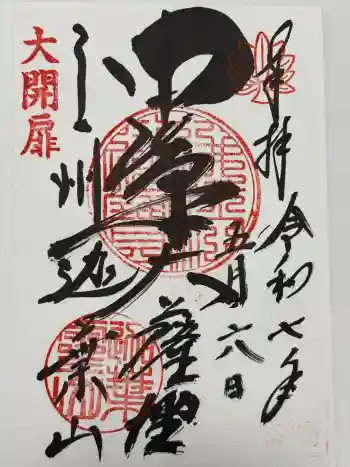 拝 令和七年
五月六日
中峯大薩埵
上州迦葉山
大開扉